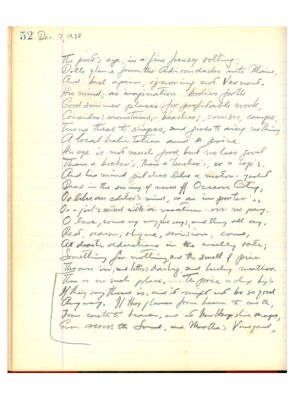 52 Dec. 7, 1938
The poet's eye, in a fine frenzy rolling,
Doth glance from the Adirondacks into Maine,
And back again, ignoring not Vermont.
His mind, as imagination bodies forth
Good summer places for profitable work,
Considers mountains, beaches, cruises, camps,
Turns these to shapes, and gives to airy nothing
A local habitation and a price.
His eye is not much good but no less good
Than a broker's, than a teacher's, or a cop's,
And his mind pitches like a motor-yacht
Dead in the swing of waves off Ocean City,
Or like an editor's mind, or an porter's,
Or a girl's mind with on vacation or no pay.
O love, errs my says, and they all say,
Rest, reason, rhyme, decision, come,
At drastic reductions in the weekly rate;
Something for nothing and the smell of pine
Thrown in, and hotter daily, and lucky weather.
There is no such place, the price is why high
If they say there is, and it might not be so good
Anyway. If they glance from heaven to earth,
From earth to heaven, and at New Hampshire maps,
Even across the Sound, and Martha's Vineyard,